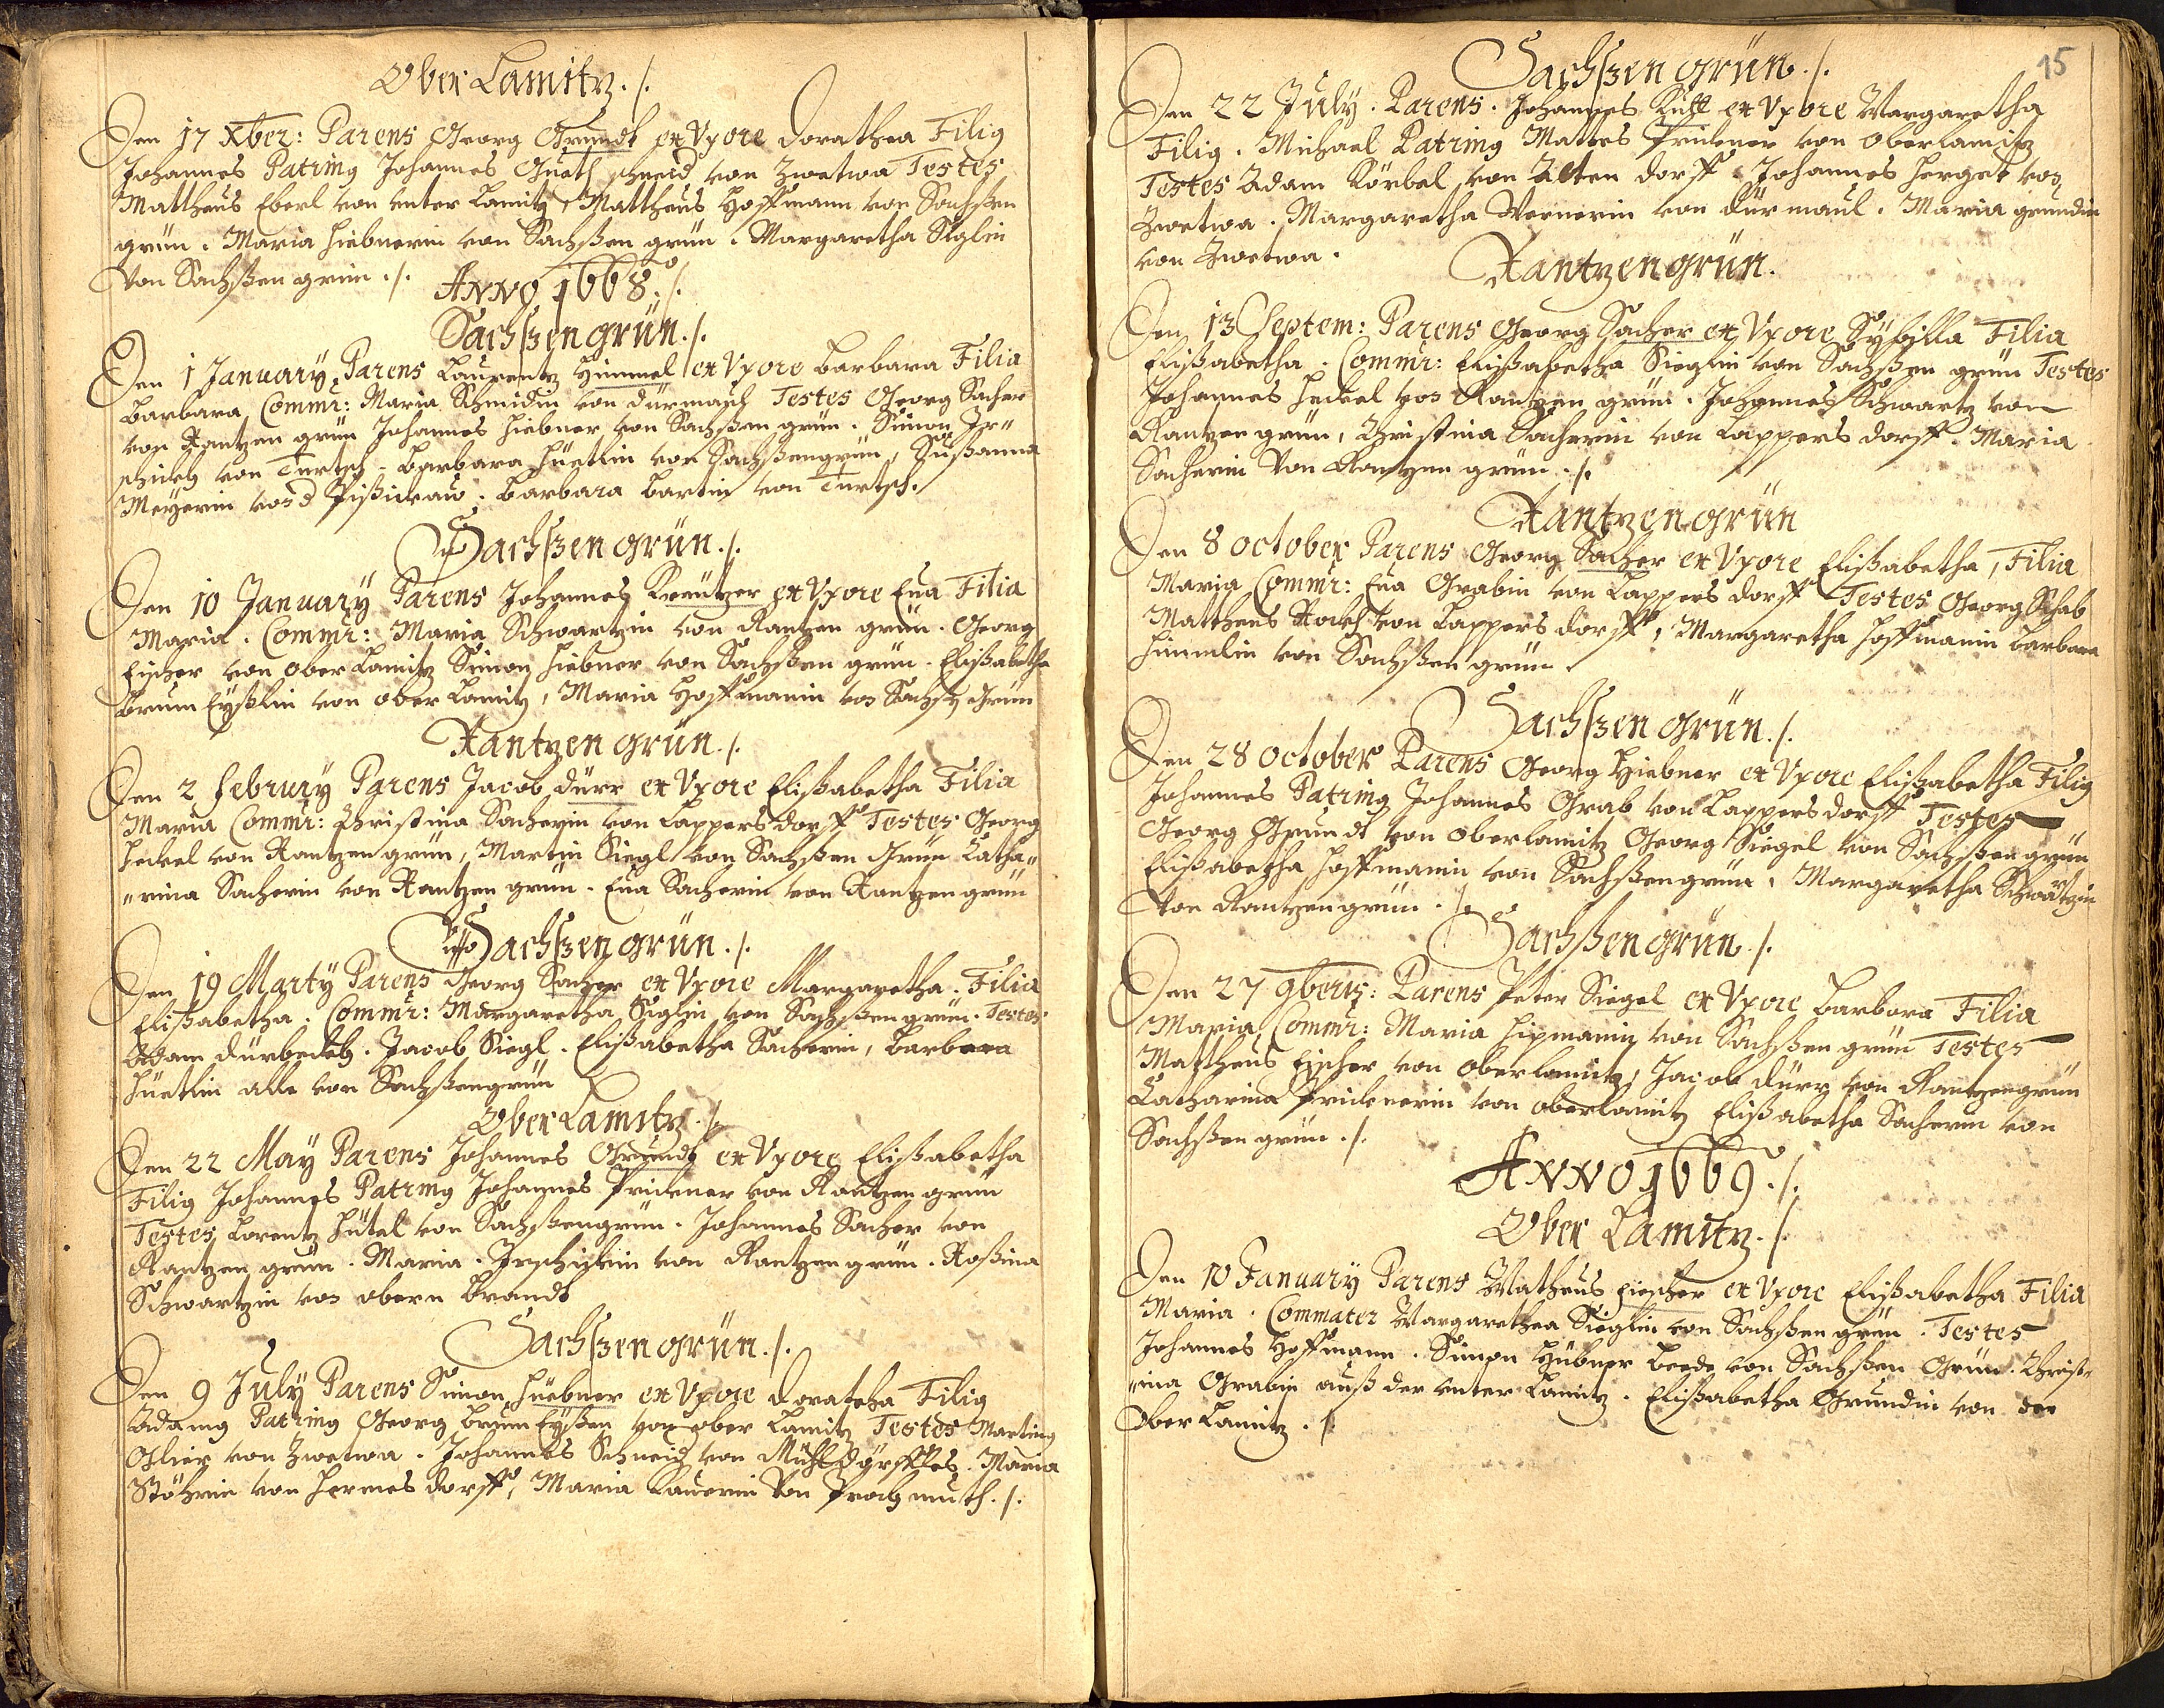 Ober Lamitz ./.
Den 17 Xber: Parens Georg Grundt et Vxore Dorathea Filig
Johannes Patring Johannes Gueth schneid von Zwetwa Testes
Mattheus Eberl von Unter Lamitz, Mattheus Hoffmann von Sachßen
grün. Maria Hiebnerin von Sachßen grün. Margaretha Siglin
Von Sachßen grün ./.
Anno 1668 ./.
Sachßen grün ./.
Den 1 January, Parens Laurentz Himmel et Vxore Barbara Filia
Barbara, Commr: Maria Schmidin von Dürmaul Testes Georg Sacher
von Rantzen grün Johannes Hiebner von Sachßen grün. Simon Ir"
schickh von Turtsch. Barbara Hüetlin von Sachßengrün, Sußanna
Meyerin von. Barbara Bartin von Turtsch.
Sachßen grün ./.
Den 10 January Parens Johannes Kreützer et Vxore Eua Filia
Maria. Commr: Maria Schwartzin von Rantzen grün. Georg
Fischer von Ober Lamitz Simon Hiebner von Sachßen grün. Elißabetha
Brunn Eyßlin von Ober Lamitz, Maria Hoffmanin von Sachß Grün
Rantzen grün ./.
Den 2 Februry Parens Jacob Dürr et Vxore Elißabetha Filia
Maria Commr: Christina Sacherin von Lappersdorff Testes Georg
Heckel von Rantzen grün, Martin Siegl von Sachßen Grün Catha"
"rina Sacherin von Rantzen grün. Eua Sacherin von Rantzen grün
Sachßen grün ./.
Den 19 Marty Parens Georg Sacher et Vxore Margaretha. Filia
Elißabetha. Commr: Margaretha Siglin von Sachßen grün. Testes
Adam Dürbeckh. Jacob Siegl. Elißabetha Sacherin, Barbara
Hüetlin alle von Sachßengrün
Ober Lamitz ./.
Den 22 May Parens Johannes Grundt et Vxore Elißabetha
Filig Johannes Patring Johannes von Rantzen grün
Testes Lorentz Hütel von Sachßengrün. Johannes Sacher von
Rantzen grün. Maria. Irschickin von Rantzen grün. Roßina
Schwartzin von obern Brandt
Sachßen grün ./.
Den 9 July Parens Simon Hüebner et Vxore Doratcha Filig
Adamg Patring Georg Brunn Eyßen von ober Lamitz Testes Marting
von Zwetwa. Johannes Schneid von Mühldörffles. Maria
Stöhrin von Hermes dorff, Maria Lauerin Von Prochmuth ./.
15
Sachßen grün ./.
Den 22 July. Parens. Johannes et Vxore Margaretha
Filig. Michael Patring Mattes von Oberlamitz
Testes Adam Körbel von Alten dorff. Johannes Herget von
Zwetwa. Margaretha Wernerin von Dürmaul. Maria grundin
von Zwetwa.
Rantzen grün.
Den 13 Septem: Parens Georg Sacher et Vxore Sybilla Filia
Elißabetha. Commr: Elißabetha Sieglin von Sachßen grün Testes
Johannes Heckel von Rantzen grün. Johannes Schwartz von
Rantzen grün, Christina Sacherin von Lappers dorff. Maria
Sacherin Von Rantzen grün ./.
Rantzen grün
Den 8 October Parens Georg Sacher et Vxore Elißabetha, Filia
Maria Commr: Eua Grabin von Lappers dorff Testes Georg Schab
Mattheus von Lappers dorff, Margaretha Hoffmanin Barbara
Himmlin von Sachßen grün.
Sachßen grün ./.
Den 28 October Parens Georg Hiebner et Vxore Elißabetha Filig
Johannes Patring Johannes Grab von Lappersdorff Testes
Georg Grundt von Oberlamitz Georg Siegel von Sachßen grün
Elißabetha Hoffmanin von Sachßengrün. Margaretha Schwartzin
Von Rantzengrün ./.
Sachßen grün ./.
Den 27 9beris: Parens Peter Siegel et Vxore Barbara Filia
Maria, Commr: Maria von Sachßen grün Testes
Mattheus Fischer von Oberlamitz, Jacob Dürr von Rantzengrün
Catharina von Oberlamitz Elißabetha Sacherin von
Sachßen grün ./.
Anno 1669 ./.
Ober Lamitz ./.
Den 10 January Parens Matheus Fischer et Vxore Elißabetha Filia
Maria. Commater Margarethea Sieglin von Sachßen grün. Testes
Johannes Hoffmann. Simon Hübner beede von Sachßen Grün. Christ"
"ina Grabin auß der Unter Lamitz. Elißabetha Grundin von der
Ober Lamitz ./.